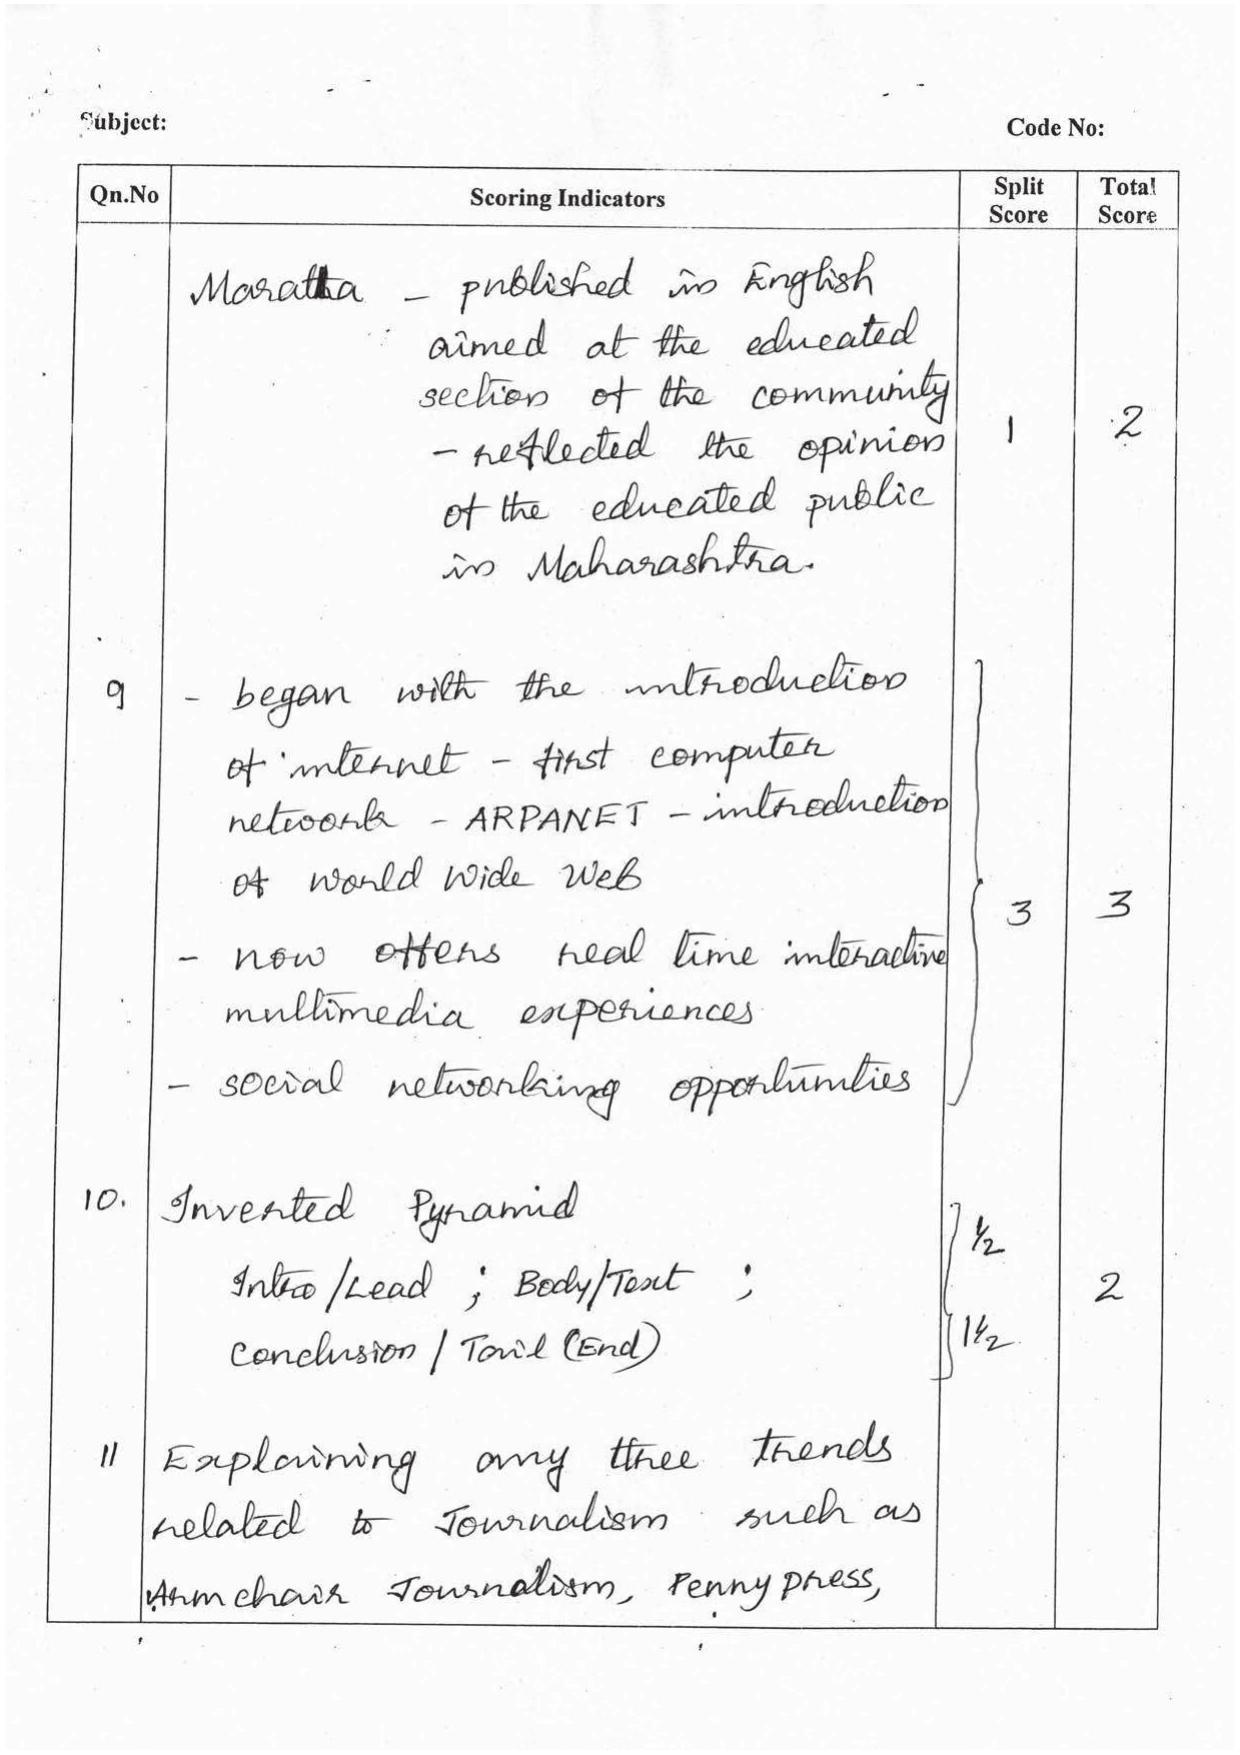 Subject:
Code No:
Qn.No Scoring Indicators Split Score Total Score
Maratha - published in English
aimed at the educated
section of the community
- reflected the opinion 1 2
of the educated public
in Maharashtra.
9 - began with the introduction
of internet - first computer
network - ARPANET - introduction
of World Wide Web 3 3
- now offers real time interactive
multimedia experiences
- social networking opportunities
10. Inverted Pyramid 1/2
Intro/Lead ; Body/Text ; 2
Conclusion / Tail (End) 1 1/2
11 Explaining any three trends
related to Journalism such as
Armchair Journalism, Penny press,